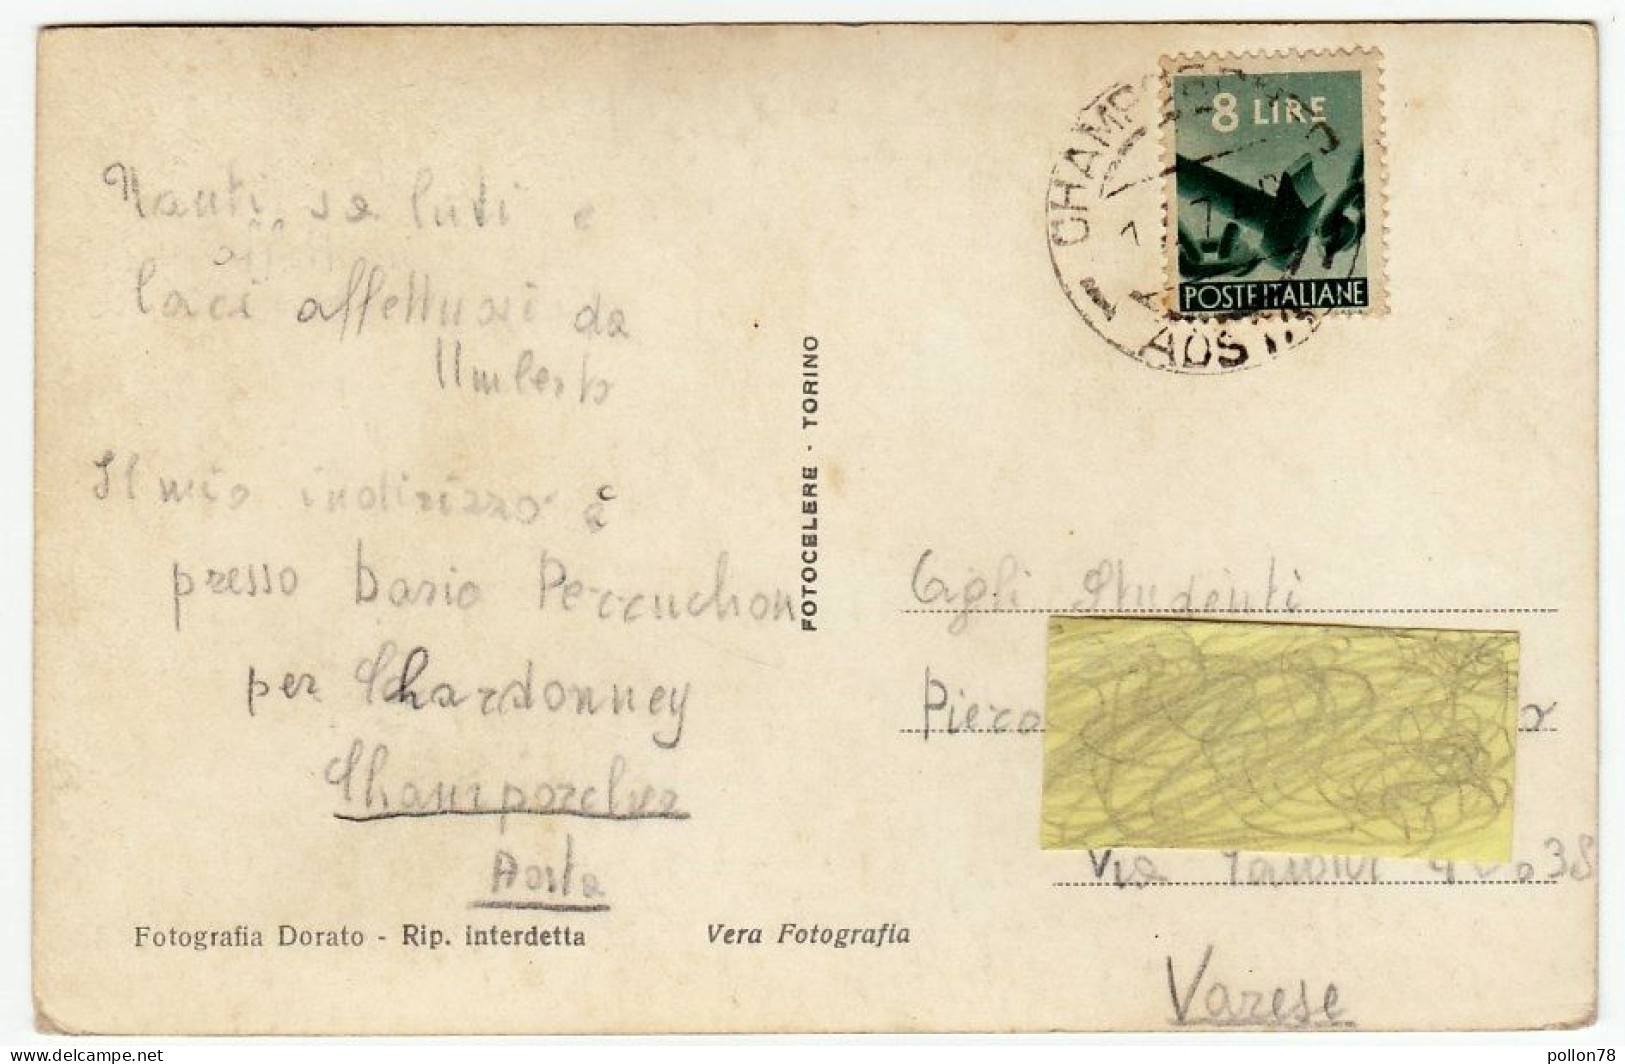 Tanti saluti e
baci affettuosi da
Umberto
Il mio indirizzo è
presso Dario Perruchon
per Chardonney
Champorcher
Aosta
Fotografia Dorato - Rip. interdetta
Vera Fotografia
FOTOCELERE - TORINO
8 LIRE
POSTE ITALIANE
CHAMPORCHER
AOSTA
Agli Studenti
Piero
Via
Varese
delcampe.net
pollon78